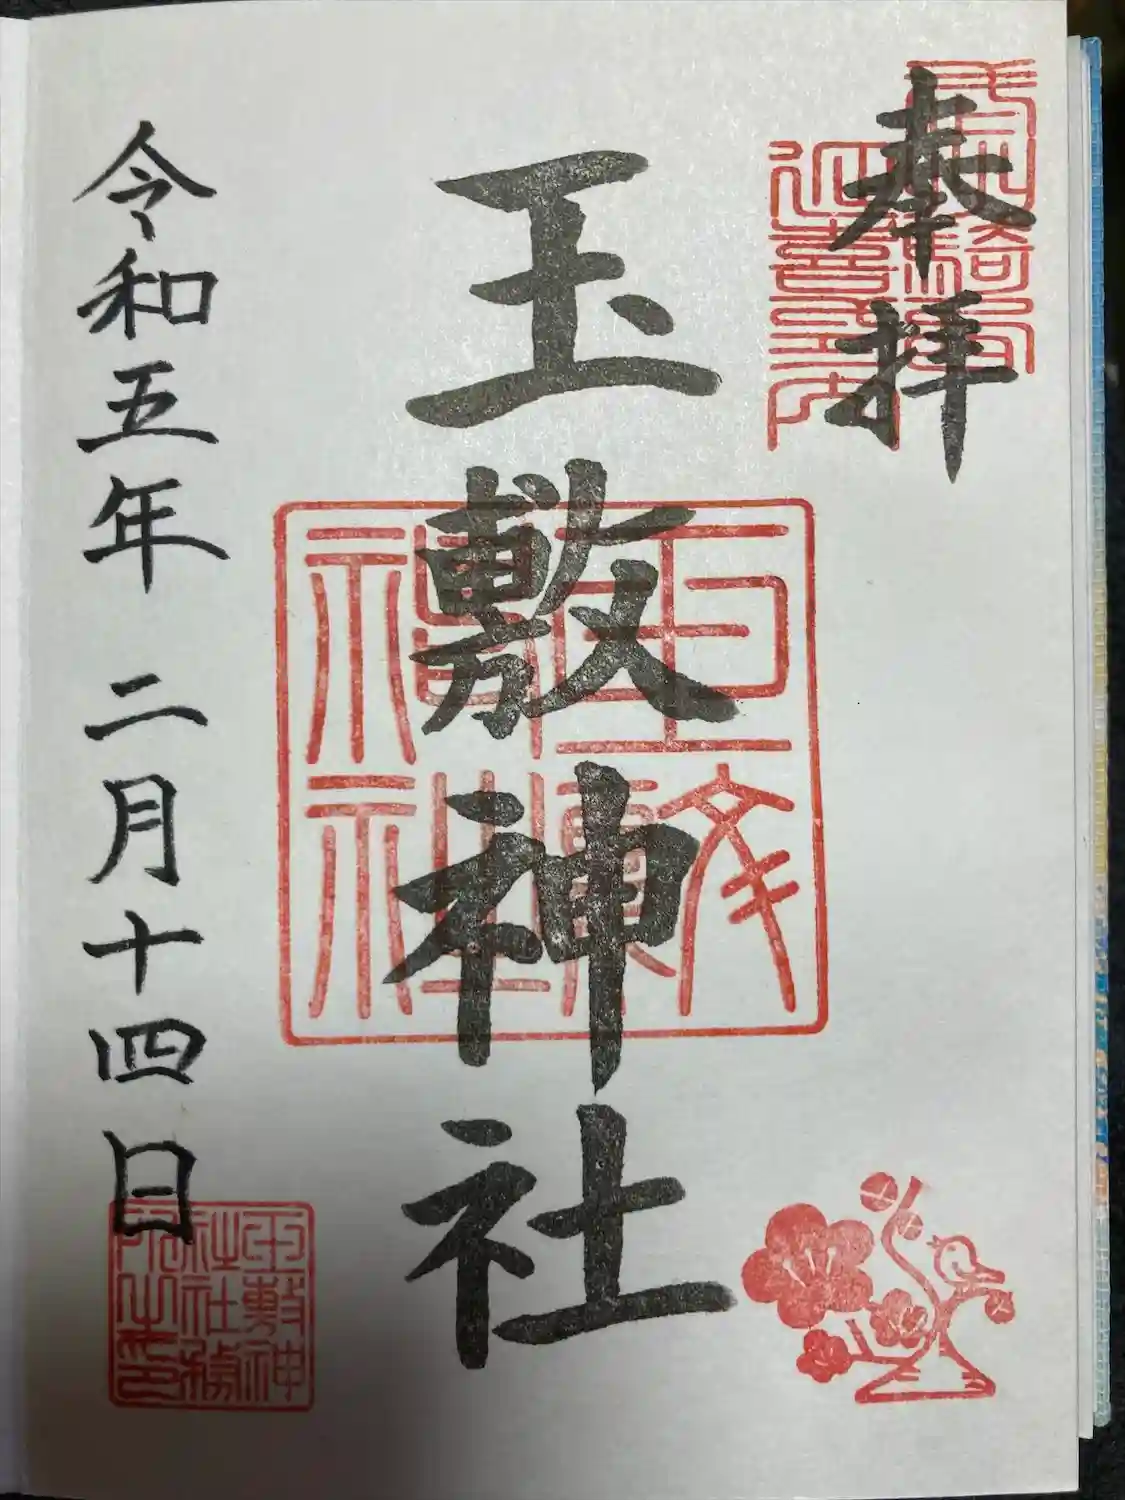 奉拝
玉敷神社
令和五年 二月十四日
玉敷神社
玉敷神社社務所之印